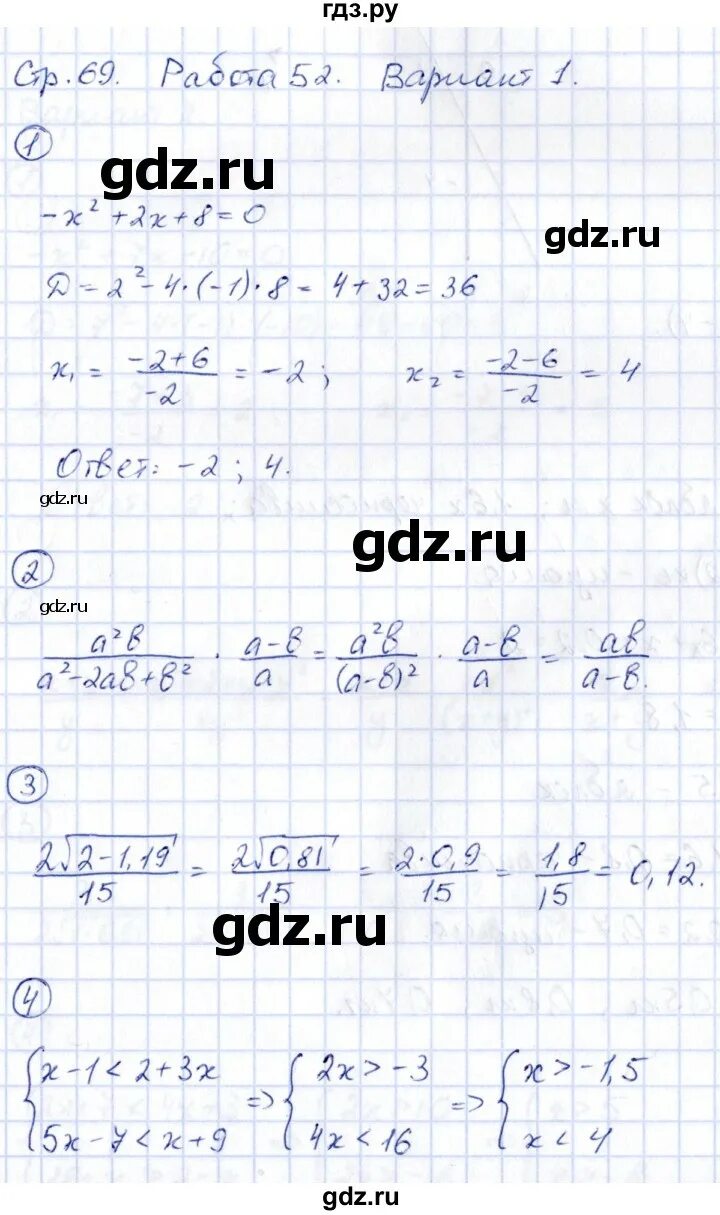 гдз.ру
Стр. 69. Работа 52. Вариант 1.
1
gdz.ru
-x² + 2x + 8 = 0
gdz.ru
D = 2² - 4·(-1)·8 = 4 + 32 = 36
x₁ = (-2+6)/(-2) = -2; x₂ = (-2-6)/(-2) = 4
Ответ: -2; 4.
gdz.ru
gdz.ru
2
gdz.ru
a²b/(a²-2ab+b²) · (a-b)/a = a²b/(a-b)² · (a-b)/a = ab/(a-b).
3
2√(2-1,19)/15 = 2√(0,81)/15 = 2·0,9/15 = 1,8/15 = 0,12.
gdz.ru
4
{x-1 < 2+3x => {2x > -3 => {x > -1,5
5x-7 < x+9 4x < 16 x < 4
gdz.ru